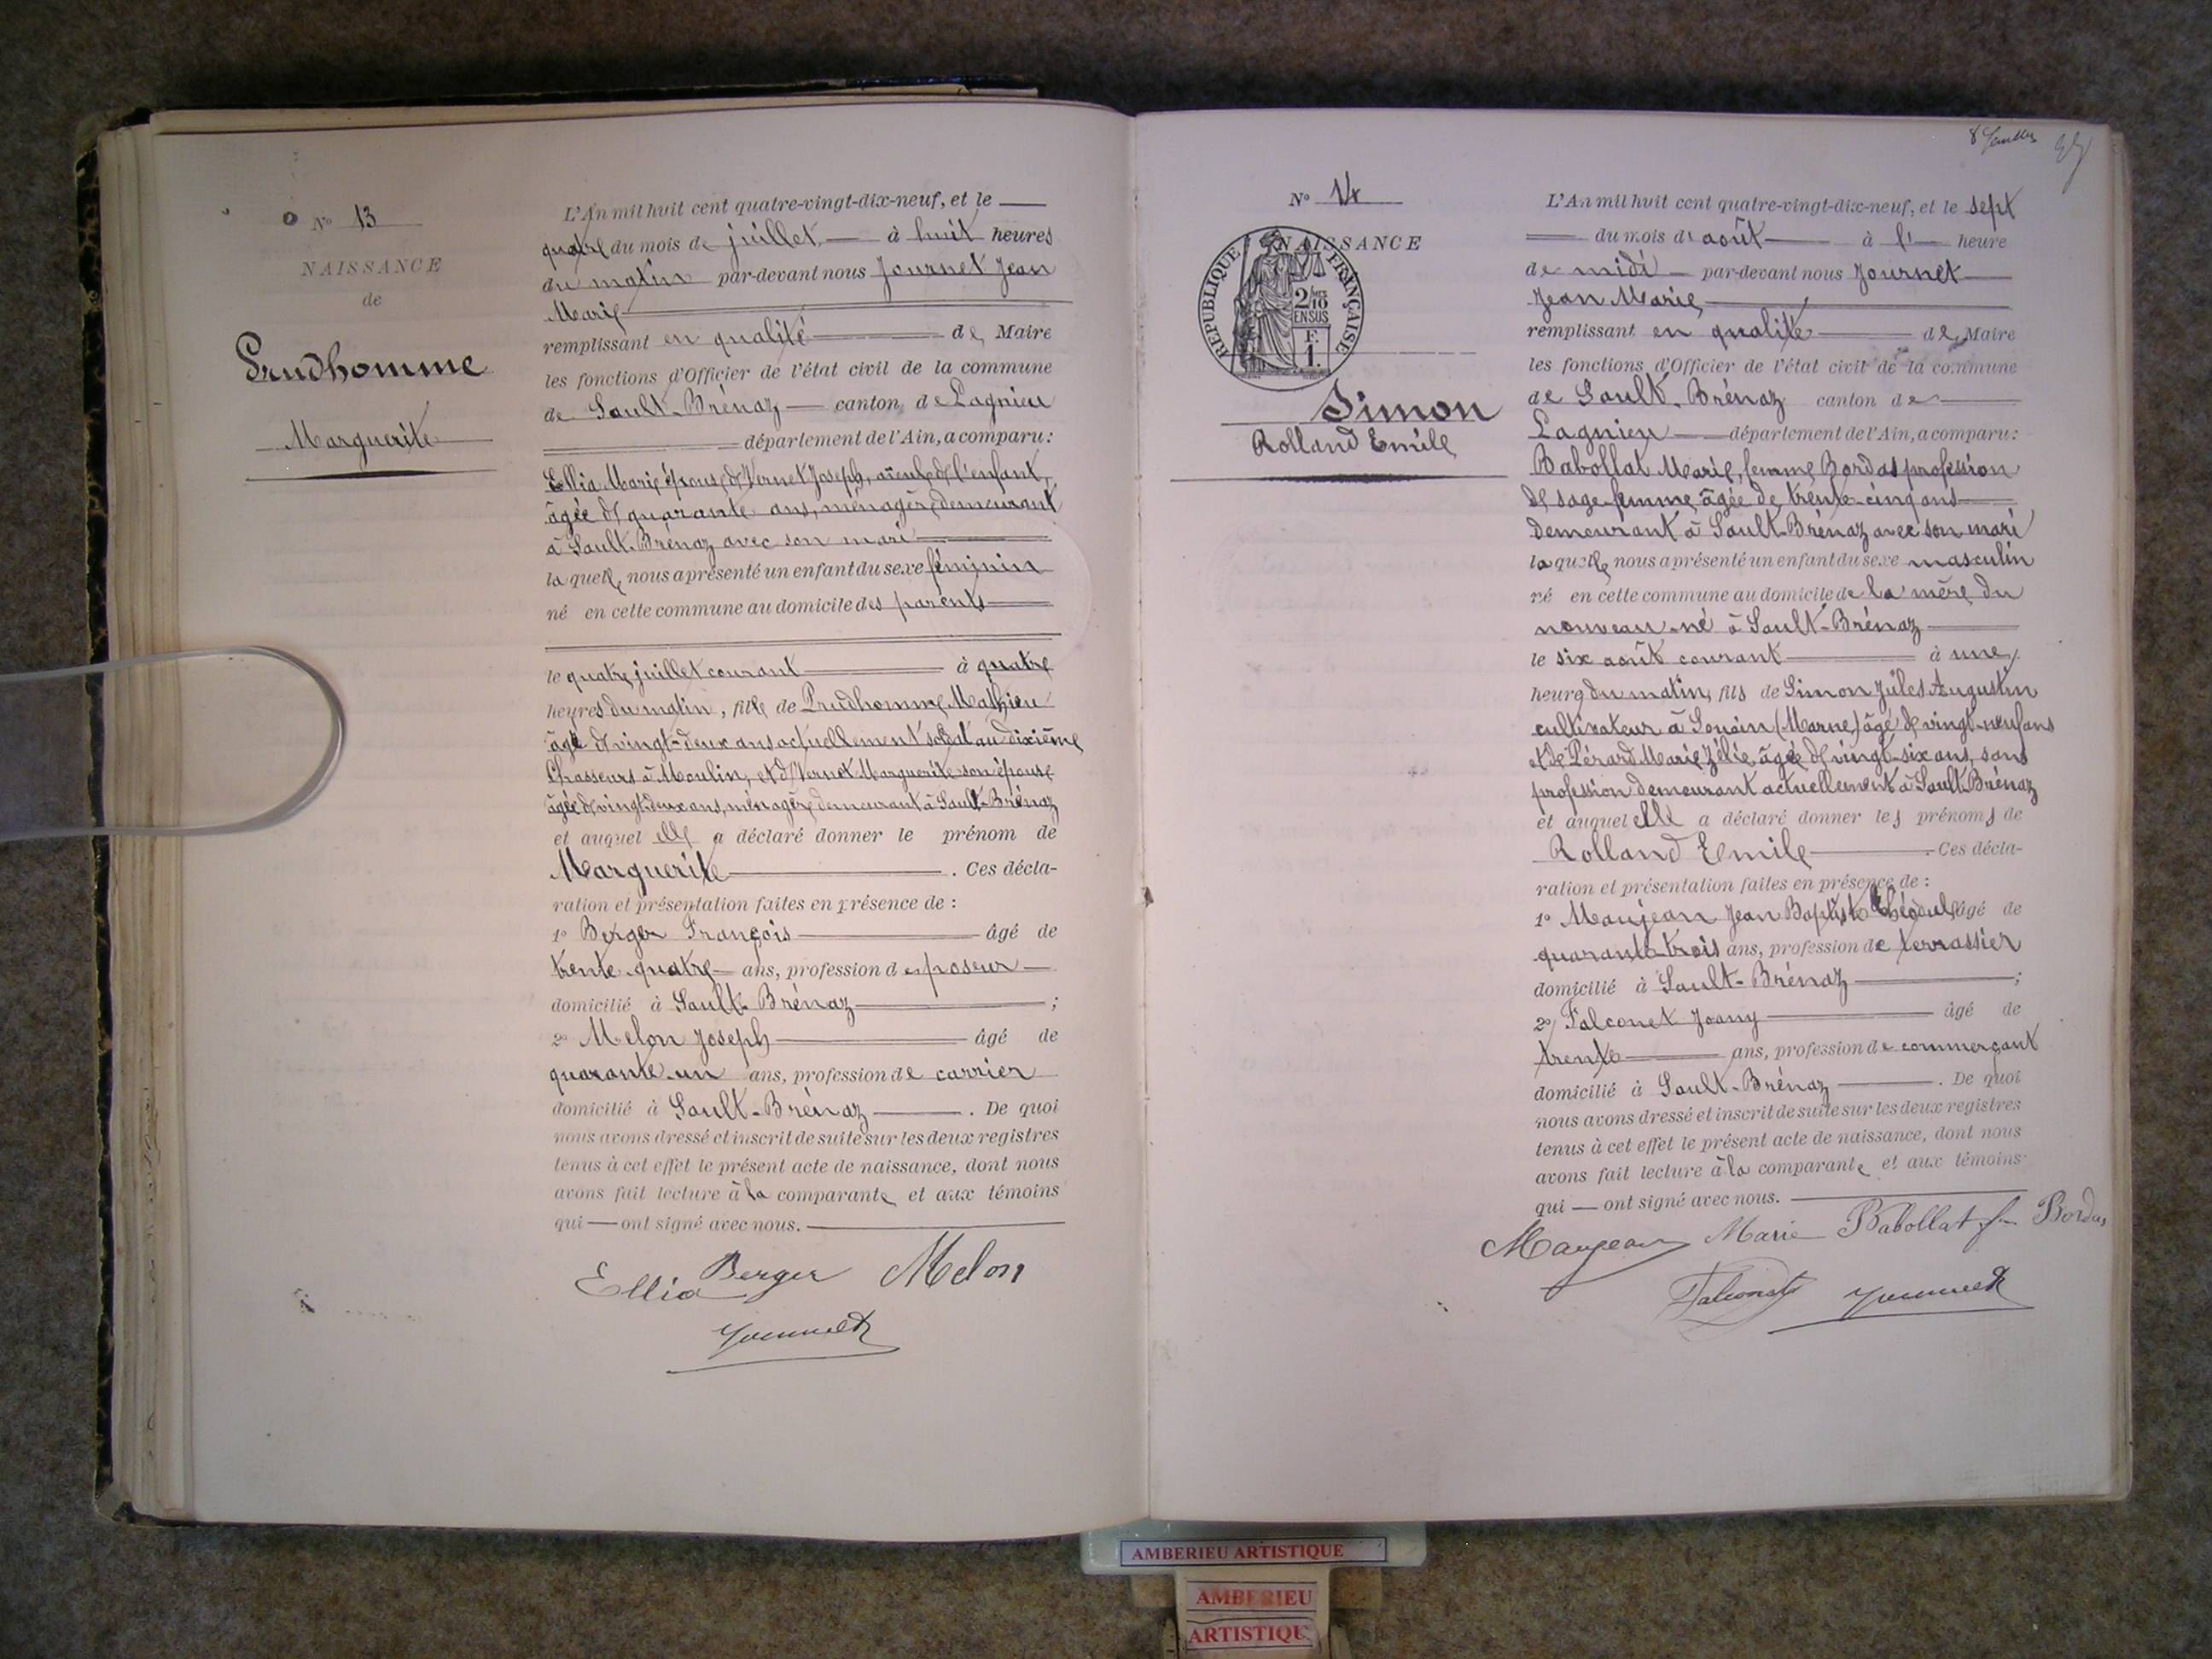 N° 13
NAISSANCE
de
Prudhomme
Marguerite
L'An mil huit cent quatre-vingt-dix-neuf, et le
quatre du mois de juillet à huit heures
du matin par-devant nous Journet Jean
Marie
remplissant en qualité de Maire
les fonctions d'Officier de l'état civil de la commune
de Sault-Brénaz canton de Lagnieu
département de l'Ain, a comparu :
Ellia Marie épouse de Vernet Joseph, aïeule de l'enfant,
âgée de quarante ans, ménagère demeurant
à Sault-Brénaz avec son mari
laquelle nous a présenté un enfant du sexe féminin
né en cette commune au domicile des parents
le quatre juillet courant à quatre
heures du matin, fille de Prudhomme Mathieu
âgé de vingt-deux ans actuellement soldat au dixième
Chasseurs à Moulin, et de Vernet Marguerite son épouse
âgée de vingt-deux ans, ménagère demeurant à Sault-Brénaz
et auquel elle a déclaré donner le prénom de
Marguerite . Ces décla-
ration et présentation faites en présence de :
1° Berger François âgé de
trente-quatre ans, profession de poseur
domicilié à Sault-Brénaz ;
2° Melon Joseph âgé de
quarante-un ans, profession de carrier
domicilié à Sault-Brénaz . De quoi
nous avons dressé et inscrit de suite sur les deux registres
tenus à cet effet le présent acte de naissance, dont nous
avons fait lecture à la comparante et aux témoins
qui — ont signé avec nous.
Ellia Berger Melon
Journet
8 feuilles
N° 14
NAISSANCE
RÉPUBLIQUE FRANÇAISE
2/10
EN SUS
F.
1.
Simon
Rolland Emile
L'An mil huit cent quatre-vingt-dix-neuf, et le sept
du mois d'août à l' heure
de midi par-devant nous Journet
Jean Marie
remplissant en qualité de Maire
les fonctions d'Officier de l'état civil de la commune
de Sault-Brénaz canton de
Lagnieu département de l'Ain, a comparu :
Babollat Marie, femme Bordas profession
de sage-femme âgée de trente-cinq ans
demeurant à Sault-Brénaz avec son mari
laquelle nous a présenté un enfant du sexe masculin
né en cette commune au domicile de la mère du
nouveau-né à Sault-Brénaz
le six août courant à une
heure du matin, fils de Simon Jules Augustin
cultivateur à Souain (Marne) âgé de vingt-neuf ans
et de Pérard Marie Zélie âgée de vingt-six ans, sans
profession demeurant actuellement à Sault-Brénaz
et auquel elle a déclaré donner les prénoms de
Rolland Emile . Ces décla-
ration et présentation faites en présence de :
1° Maujean Jean Baptiste Théodule âgé de
quarante-trois ans, profession de terrassier
domicilié à Sault-Brénaz ;
2° Falconet Joany âgé de
trente ans, profession de commerçant
domicilié à Sault-Brénaz . De quoi
nous avons dressé et inscrit de suite sur les deux registres
tenus à cet effet le présent acte de naissance, dont nous
avons fait lecture à la comparante et aux témoins
qui — ont signé avec nous.
Maujean Marie Babollat f. Bordas
Falconet Journet
AMBERIEU ARTISTIQUE
AMBERIEU
ARTISTIQUE